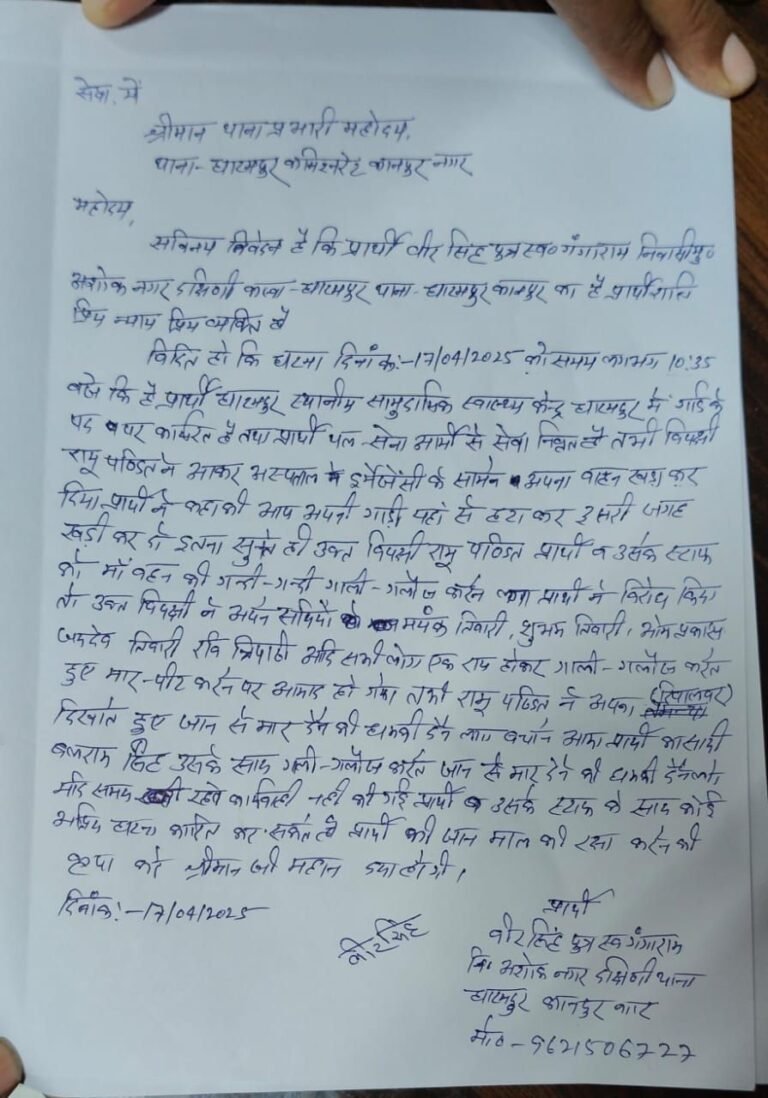 सेवा में
श्रीमान थाना प्रभारी महोदय,
थाना- घाटमपुर कमिश्नरेट कानपुर नगर
महोदय,
सविनय निवेदन है कि प्रार्थी वीर सिंह पुत्र स्व० गंगाराम निवासी मु०
अशोक नगर दक्षिणी कस्बा - घाटमपुर थाना- घाटमपुर कानपुर का है प्रार्थी शान्ति
प्रिय न्याय प्रिय व्यक्ति है
विदित हो कि घटना दिनांक:-17/04/2025 को समय लगभग 10:35
बजे कि है प्रार्थी घाटमपुर स्थानीय सामुदायिक स्वास्थ्य केन्द्र घाटमपुर में गार्ड के
पद पर कार्यरत है तथा प्रार्थी थल-सेना आर्मी से सेवा निवृत है तभी विपक्षी
रामू पण्डित ने आकर अस्पताल के इमेजेंसी के सामने अपना वाहन खड़ा कर
दिया प्रार्थी ने कहा की आप अपनी गाड़ी यहां से हटा कर दुसरी जगह
खड़ी कर दो इतना सुनते ही उक्त विपक्षी रामू पण्डित प्रार्थी व उसके स्टाफ
को माँ बहन की गन्दी-गन्दी गाली-गलौज करने लगा प्रार्थी ने विरोध किया
तो उक्त विपक्षी ने अपने साथियों मयंक तिवारी, शुभम तिवारी, ओम प्रकास
जयदेव तिवारी रवि त्रिपाठी आदि सभी लोग एक राय होकर गाली-गलौज करते
हुए मार-पीट करने पर आमादा हो गये तभी रामू पण्डित ने अपना (रिवालवर)
दिखाते हुए जान से मार देने की धमकी देने लगा बचाने आया प्रार्थी का साथी
बलराम सिंह उसके साथ गाली-गलौज करते जान से मार देने की धमकी देने लगे
यदि समय रहते कार्यवाही नही की गई प्रार्थी व उसके स्टाफ के साथ कोई
अप्रिय घटना कारित कर सकते है प्रार्थी की जान माल की रक्षा करने की
कृपा करे श्रीमान जी महान दया होगी।
दिनांक:-17/04/2025
वीर सिंह
प्रार्थी
वीर सिंह पुत्र स्व गंगाराम
नि० अशोक नगर दक्षिणी थाना
घाटमपुर कानपुर नगर
मो०-9621506727